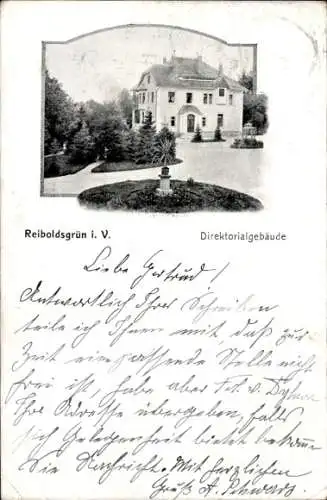 Reiboldsgrün i. V.
Direktorialgebäude
Liebe Gertrud!
Antwortlich Ihres Schreiben
teile ich Ihnen mit daß zur
Zeit eine passende Stelle nicht
frei ist, habe aber Frl. v.
Ihre Adresse übergeben, falls
sich Gelegenheit bietet bekommen
Sie Nachricht. Mit herzlichen
Gruß A. Schwarz